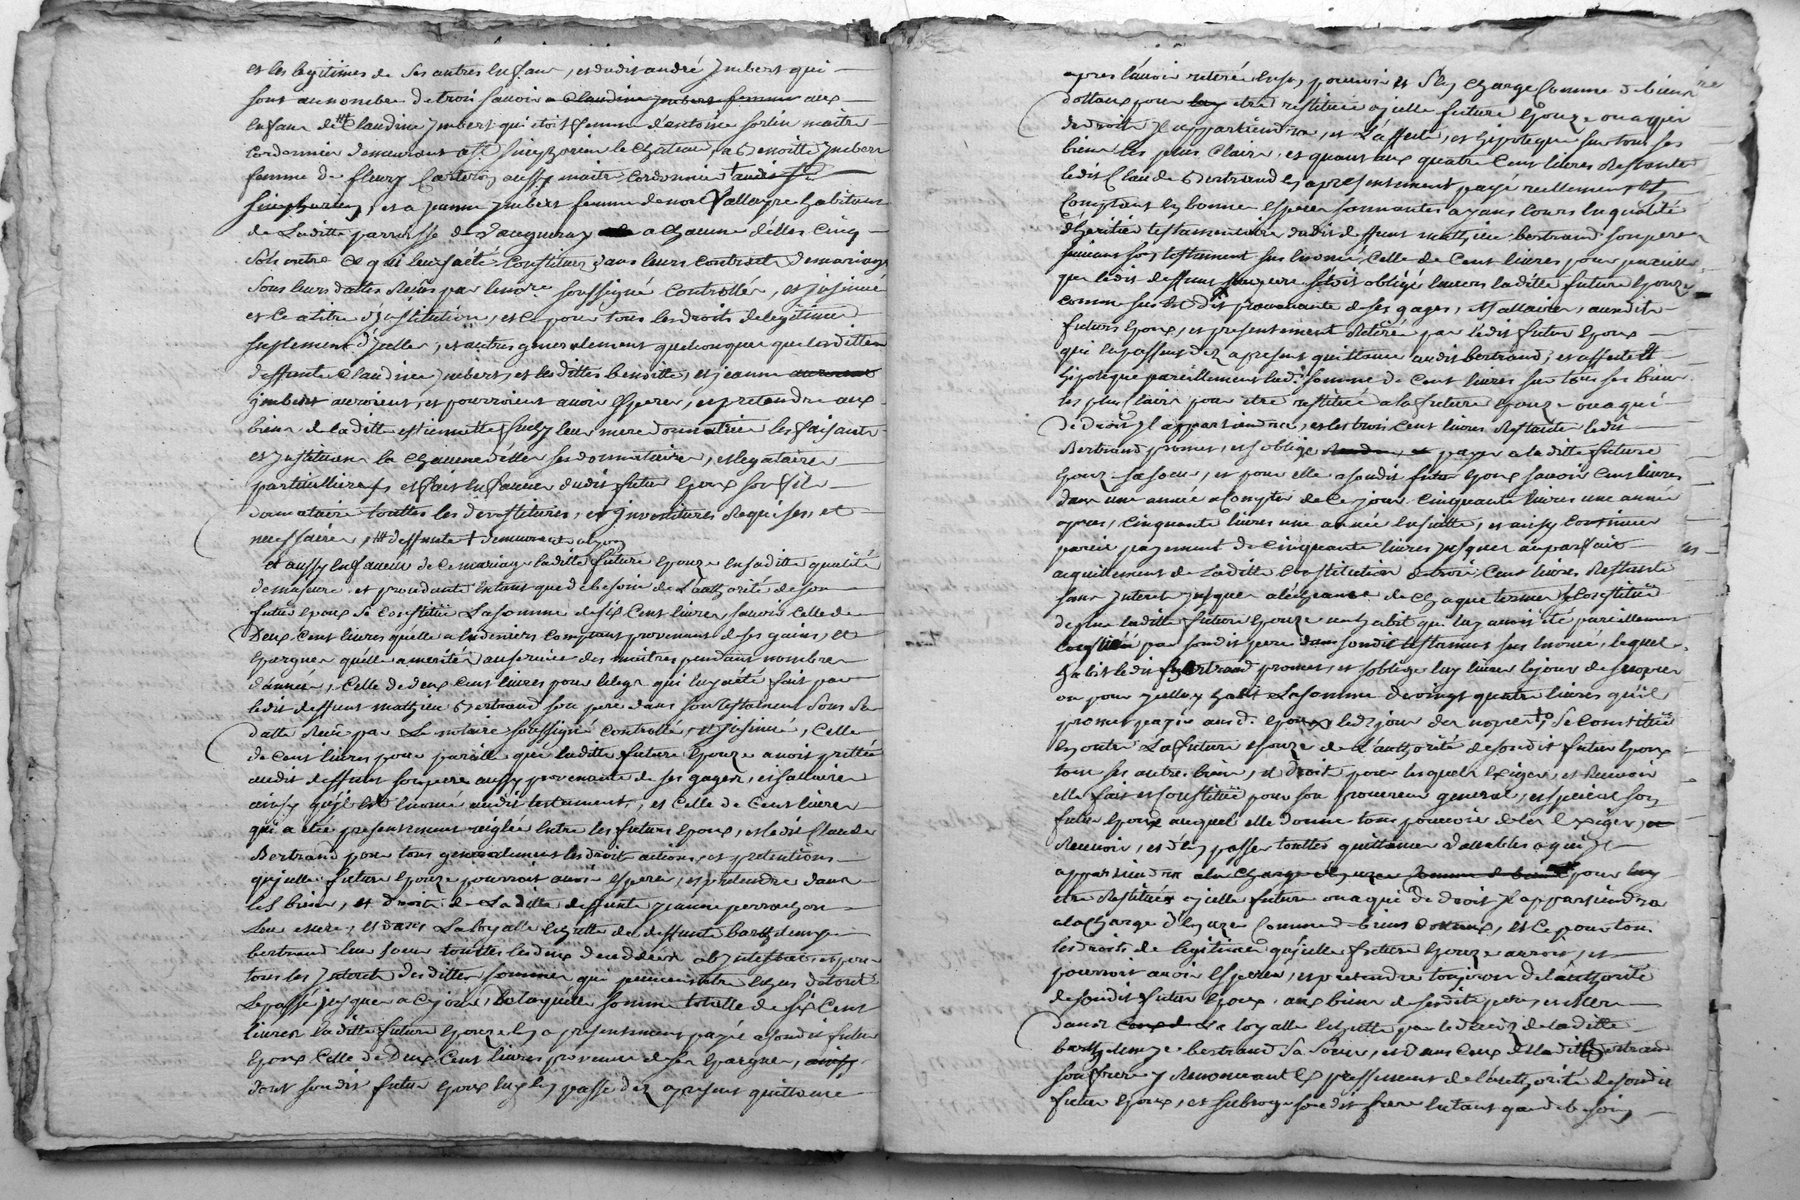 et les legitimes de ses autres enfans, et dudit andré jmbert qui
sont au nombre de trois savoir a Claudine jmbert femme aux
enfans de Claudine jmbert qui étoit femme d'antoine sorlin maitre
cordonnier demeurant a st simphorien le chateau, a Benoitte jmbert
femme de fleury aussy maitre cordonnier audit st
simphorien, et a jeanne jmbert femme de noel habitans
de Laditte parroisse de vaugneray a chacune d'elles cinq
sols outre ce qui leur a été constitué dans leurs contrats de mariage
sous leurs dattes Reçus par le nore soussigné controllés, et jnsinué
et ce a titre d'jnstitution, et ce pour tous les droits de legitime
suplement d'jcelle, et autres generalement quelconques que lesdittes
deffunte Claudine jmbert, et lesdittes benoitte, et jeanne
jmbert auroient, et pourroient avoir esperer, et pretendre aux
biens de laditte estiennette leur mere donnatrice les faisants
et jnstituant la chacune d'elles ses donnataires, et legataires
particulieres et fait en faveur dudit futur epoux son fils
donnataire touttes les devestitures, et jnvestitures Requises, et
necessaires, deffunte + demeurant a lyon
et aussy en faveur de ce mariage laditte future epouze en saditte qualité
de majeure et procedante entant que de besoin de L'authorité de son
futur epoux se constitue La somme de six cent livres savoir celle de
Deux cent livres quelle a en deniers comptant provenant de ses gains, et
epargnes qu'elle a merités au service des maitres pendant nombre
d'années, celle de deux cent livres pour le legs qui luy a été fait par
ledit deffunt mathieu Bertrand son pere dans son testament sous sa
datte Reçu par Le notaire soussigné controllé, et jnsinué, celle
de cent livres pour pareille que laditte future epouze avoit prettée
audit deffunt son pere aussy provenante de ses gages, et sallaires
ainsy qu'il est enoncé audit testament, et celle de cent livres
qui a été presentement reglée entre les futurs epoux, et ledit Claude
Bertrand pour tous generalement les droits actions, et pretentions
qu'jcelle future epouze pourroit avoir esperer, et pretendre dans
les biens, et droits de Laditte deffunte jeanne perrachon
Leur mere, et dans La de deffunte barthelemye
bertrand leur soeur touttes les deux decedées ab jntestat et pour
tous les jnterets desdittes sommes qui peuvent etre eschus de tout
Le passé jusques a ce jour, De laquelle somme totalle de six cent
livres laditte future epouze en a presentement payé a sondit futur
epoux celle de Deux cent livres provenue de ses epargnes, ainsy
dont sondit futur epoux luy en passe dez a present quittance
apres l'avoir retirée en son pouvoir et s'en charge comme de biens
dottaux pour luy etre restituée a jcelle future epouze ou a qui
de droit jl appartiendra, et L'affecte, et hypoteque sur tous ses
biens les plus clairs, et quant aux quatre cent livres Restante
ledit Claude Bertrand en a presentement payé reellement et
comptant en bonnes especes sonnantes ayans cours en qualité
d'heritier testamentaire dudit deffunt mathieu bertrand son pere
suivant son testament sus énoncé, celle de cent livres pour pareille
que ledit deffunt son pere s'étoit obligé envers laditte future epouze
comme sus est dit provenante de ses gages, et sallaires, auxdits
futurs epoux, et presentement Retirée par ledit futur epoux
qui en passe dez a present quittance audit bertrand, et affecte et
hypoteque pareillement lad. somme de cent livres sur tous ses biens
les plus clairs pour etre restituée a la future epouze ou a qui
de droit jl appartiendra, et les trois cent livres Restante ledit
Bertrand promet, et s'oblige payer a laditte future
epouze sa soeur, et pour elle a sondit futur epoux savoir cent livres
dans une année a compter de ce jour cinquante livres une année
apres, cinquante livres une année ensuitte, et ainsy continuer
pareil payement de cinquante livres jusques au parfait
acquittement de laditte constitution de trois cent livres Restante
sans jnterets jusques a l'echeance de chaque terme, se constitue
de plus laditte future epouze un habit qui luy avoit été pareillement
constitué par sondit pere dans sondit testament sus enoncé, lequel
habit ledit Bertrand promet, et s'oblige luy livrer le jour des nopces
ou pour jcelluy habit La somme de vingt quatre livres qu'il
promet payer aud. epoux led. jour des nopces, Se constitue
en outre La future epouze de L'authorité de sondit futur epoux
tous ses autres biens, et droits pour lesquels exiger, et Recevoir
elle fait et constitue pour son procureur general, et special son
futur epoux auquel elle donne tous pouvoirs de les exiger,
Recevoir, et d'en passer touttes quittances vallables a qui jl
appartiendra a la charge d'en uzer comme de biens pour luy
etre Restitués a jcelle future ou a qui de droit jl appartiendra
a la charge d'en uzer comme de biens dotaux, et ce pour tous
les droits de legitime qu'jcelle future epouze auroit, et
pourroit avoir esperer, et pretendre toujours de l'authorité
de sondit futur epoux, aux biens de sesdits pere, et mere
dans La par le deceds de laditte
barthelemye bertrand sa soeur, et dans ceux dudit Bertrand
son frere y Renonceant expressement de l'authorité de sondit
futur epoux, et subroge sondit frere entant que de besoin